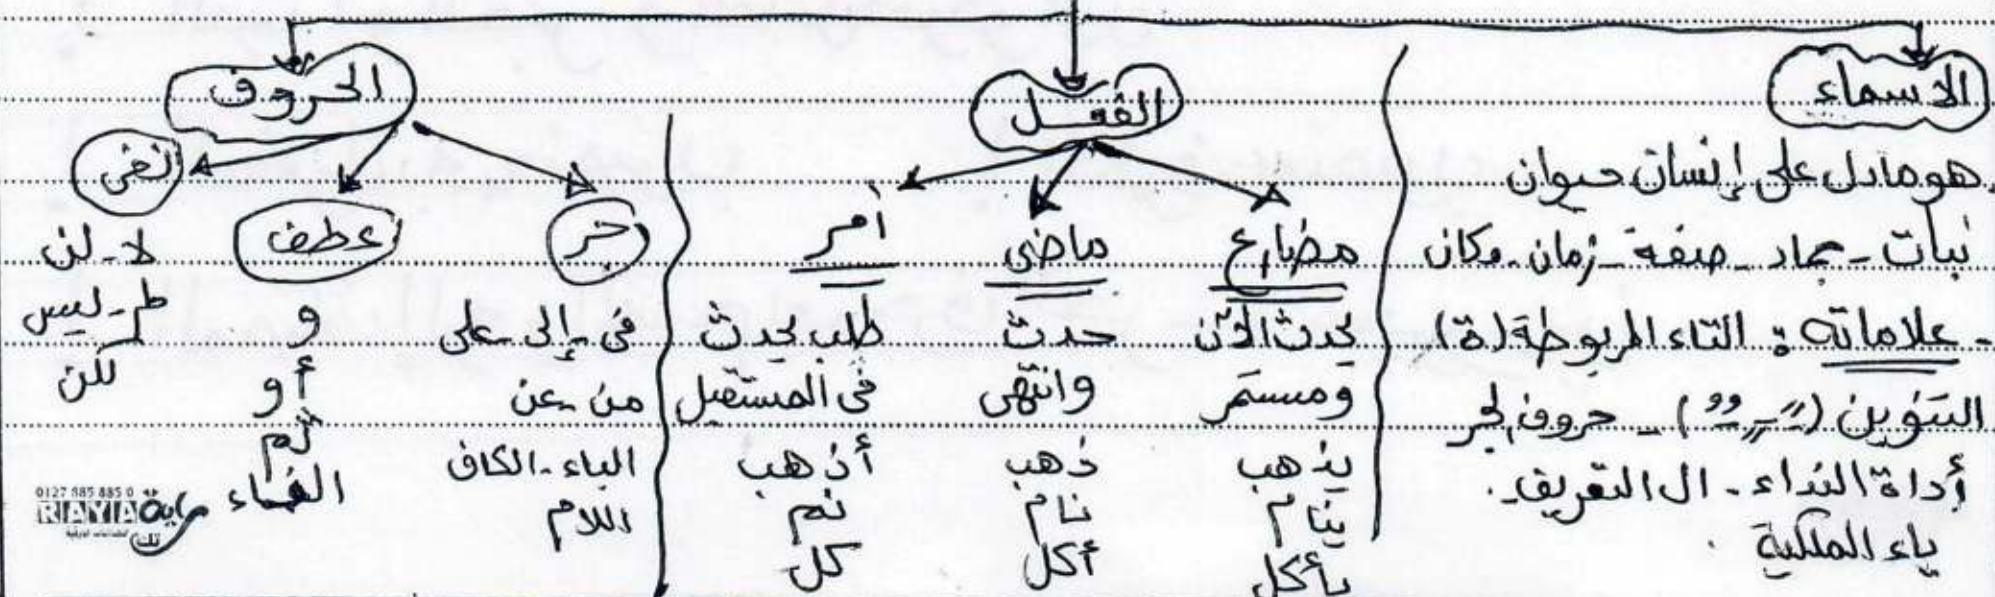 الاسماء
هو مادل على إنسان حيوان
نبات - جماد - صفة - زمان - مكان
- علاماته : التاء المربوطة (ة)
التنوين (ـًـٍـٌ) - حروف الجر
أداة النداء - ال التعريف.
ياء الملكية .
الفعل
مضارع
يحدث الآن
ومستمر
يذهب
ينام
يأكل
ماضى
حدث
وانتهى
ذهب
نام
أكل
أمر
طلب يحدث
فى المستقبل
أذهب
نم
كل
الحروف
جر
فى - إلى - على
من - عن
الباء - الكاف
اللام
عطف
و
أو
ثم
الفاء
نفى
لا - لن
لم - ليس
لكن
0127 885 885 0
RAYA راية
تك